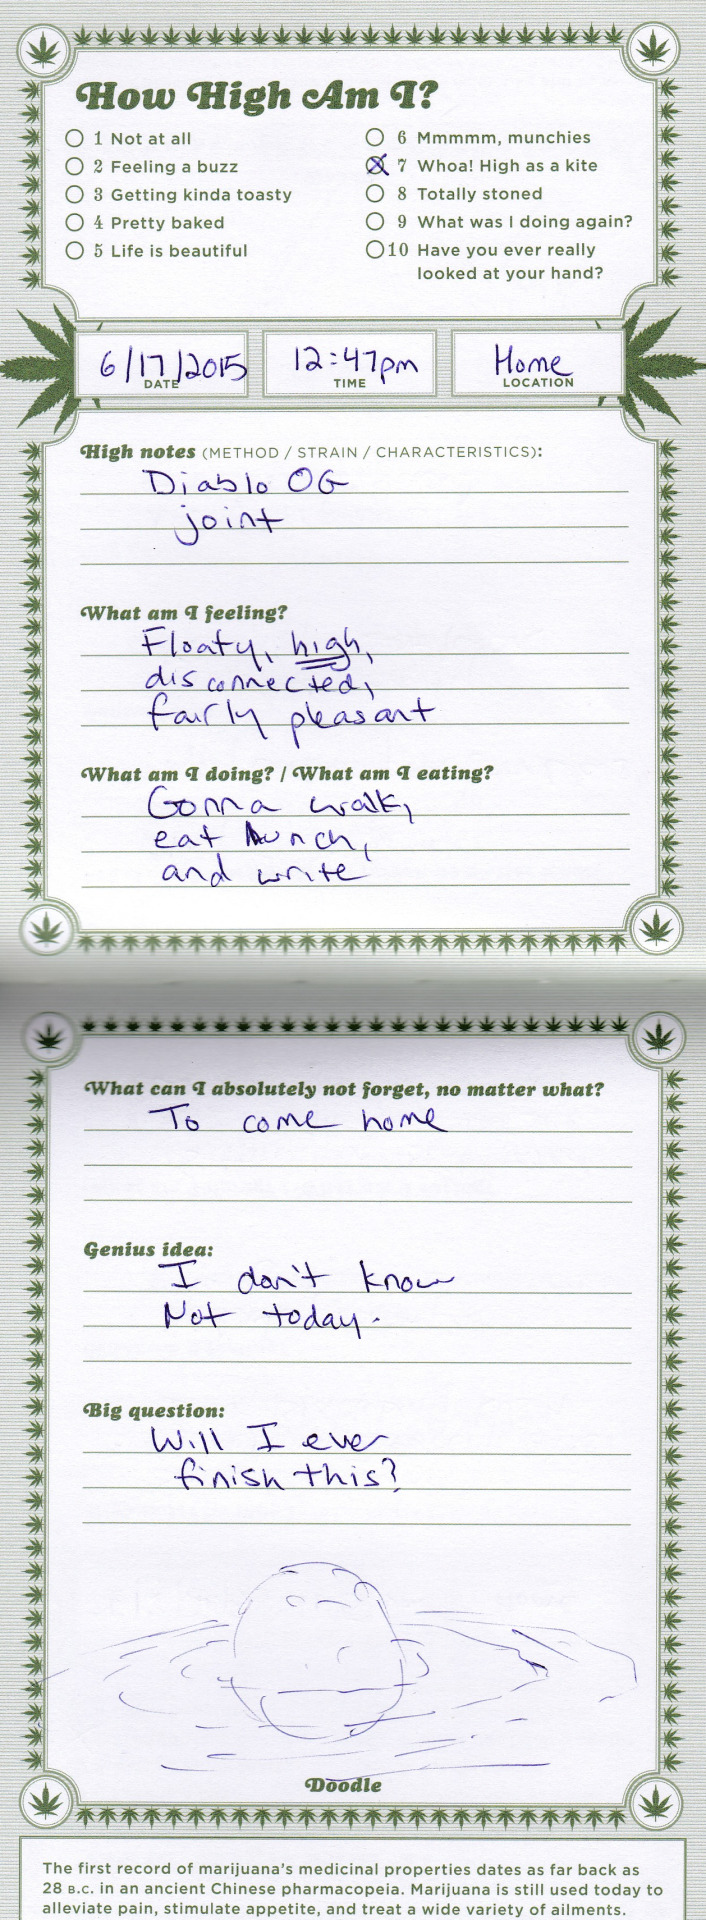 How High Am I?
1 Not at all
2 Feeling a buzz
3 Getting kinda toasty
4 Pretty baked
5 Life is beautiful
6 Mmmmm, munchies
7 Whoa! High as a kite
8 Totally stoned
9 What was I doing again?
10 Have you ever really
looked at your hand?
6/17/2015
DATE
12:47pm
TIME
Home
LOCATION
High notes (METHOD / STRAIN / CHARACTERISTICS):
Diablo OG
joint
What am I feeling?
Floaty, high,
disconnected,
fairly pleasant
What am I doing? / What am I eating?
Gonna walk,
eat lunch,
and write
What can I absolutely not forget, no matter what?
To come home
Genius idea:
I don't know
Not today.
Big question:
Will I ever
finish this?
Doodle
The first record of marijuana's medicinal properties dates as far back as
28 B.C. in an ancient Chinese pharmacopeia. Marijuana is still used today to
alleviate pain, stimulate appetite, and treat a wide variety of ailments.